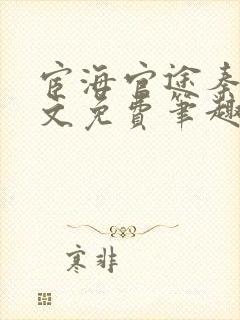 宦海官途秦
文免费笔趣
寒非